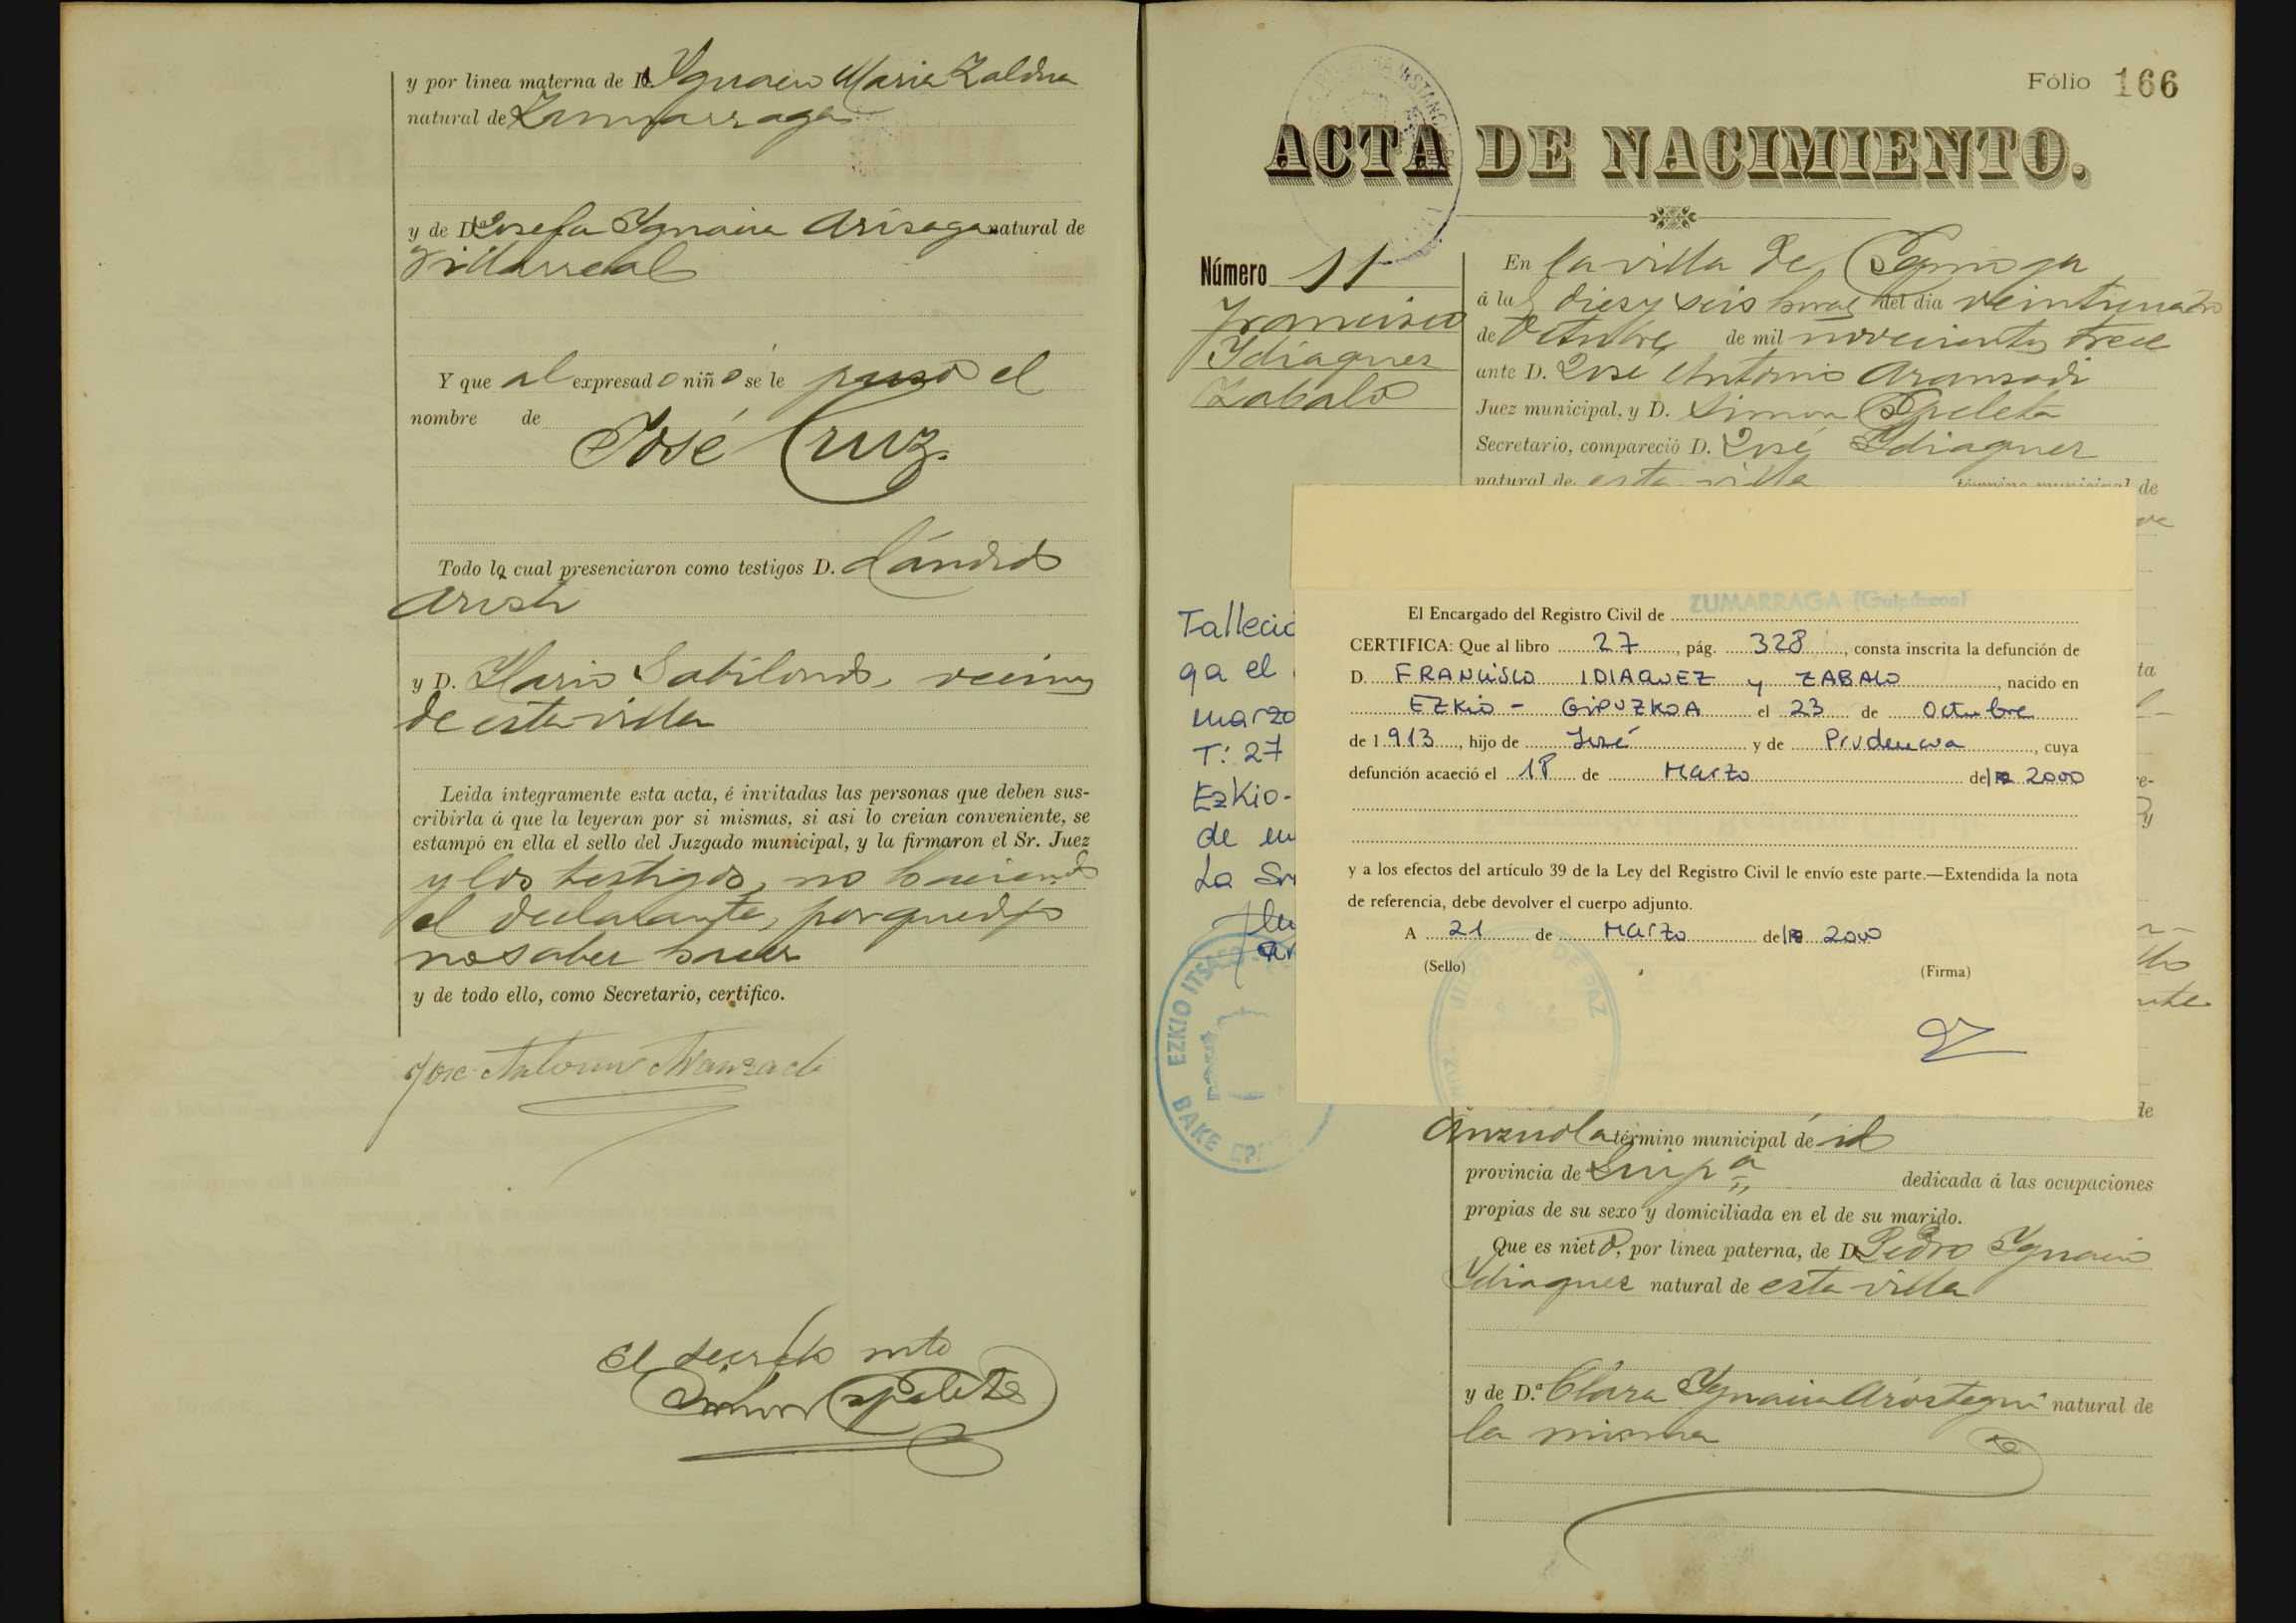 y por linea materna de D. Ygnacio Maria Zaldua
natural de Zumarraga
y de D.ª Josefa Ygnacia Arisaga natural de
Villarreal
Y que al expresado niño se le puso el
nombre de
José Cruz.
Todo lo cual presenciaron como testigos D. Cándido
y D. Ylario Sabilondo, vecinos
de esta villa
Leida integramente esta acta, é invitadas las personas que deben sus-
cribirla á que la leyeran por si mismas, si asi lo creian conveniente, se
estampó en ella el sello del Juzgado municipal, y la firmaron el Sr. Juez
y los testigos, no haciendo
el declarante, porque dijo
no saber hacer
y de todo ello, como Secretario, certifico.
José Antonio Aranzadi
El secreto
Simon Espeleta
Fólio 166
ACTA DE NACIMIENTO.
Número 11
Francisco
Ydiaquez
Zabalo
En la villa de
á las diez y seis horas del dia veinticuatro
de Octubre de mil novecientos trece
ante D. José Antonio Aransadi
Juez municipal, y D. Simon Espeleta
Secretario, compareció D. José Ydiaquez
natural de esta villa término municipal de
Falleció
ga el
marzo
T: 27
Ezkio-
de
La
EZKIO ITSASO
BAKE EPAI
ZUMARRAGA (Guipúzcoa)
El Encargado del Registro Civil de
CERTIFICA: Que al libro 27, pág. 328, consta inscrita la defunción de
D. FRANCISCO IDIAQUEZ y ZABALO, nacido en
EZKIO - GIPUZKOA el 23 de Octubre
de 1.913, hijo de José y de Prudencia, cuya
defunción acaeció el 18 de Marzo de 2000
y a los efectos del artículo 39 de la Ley del Registro Civil le envío este parte.—Extendida la nota
de referencia, debe devolver el cuerpo adjunto.
A 21 de Marzo de 2000
(Sello)
(Firma)
DE PAZ
Anzuola término municipal de id
provincia de Guipª dedicada á las ocupaciones
propias de su sexo y domiciliada en el de su marido.
Que es nieto, por linea paterna, de D. Pedro Ygnacio
Ydiaquez natural de esta villa
y de D.ª Clara Ygnacia Aróstegui natural de
la misma